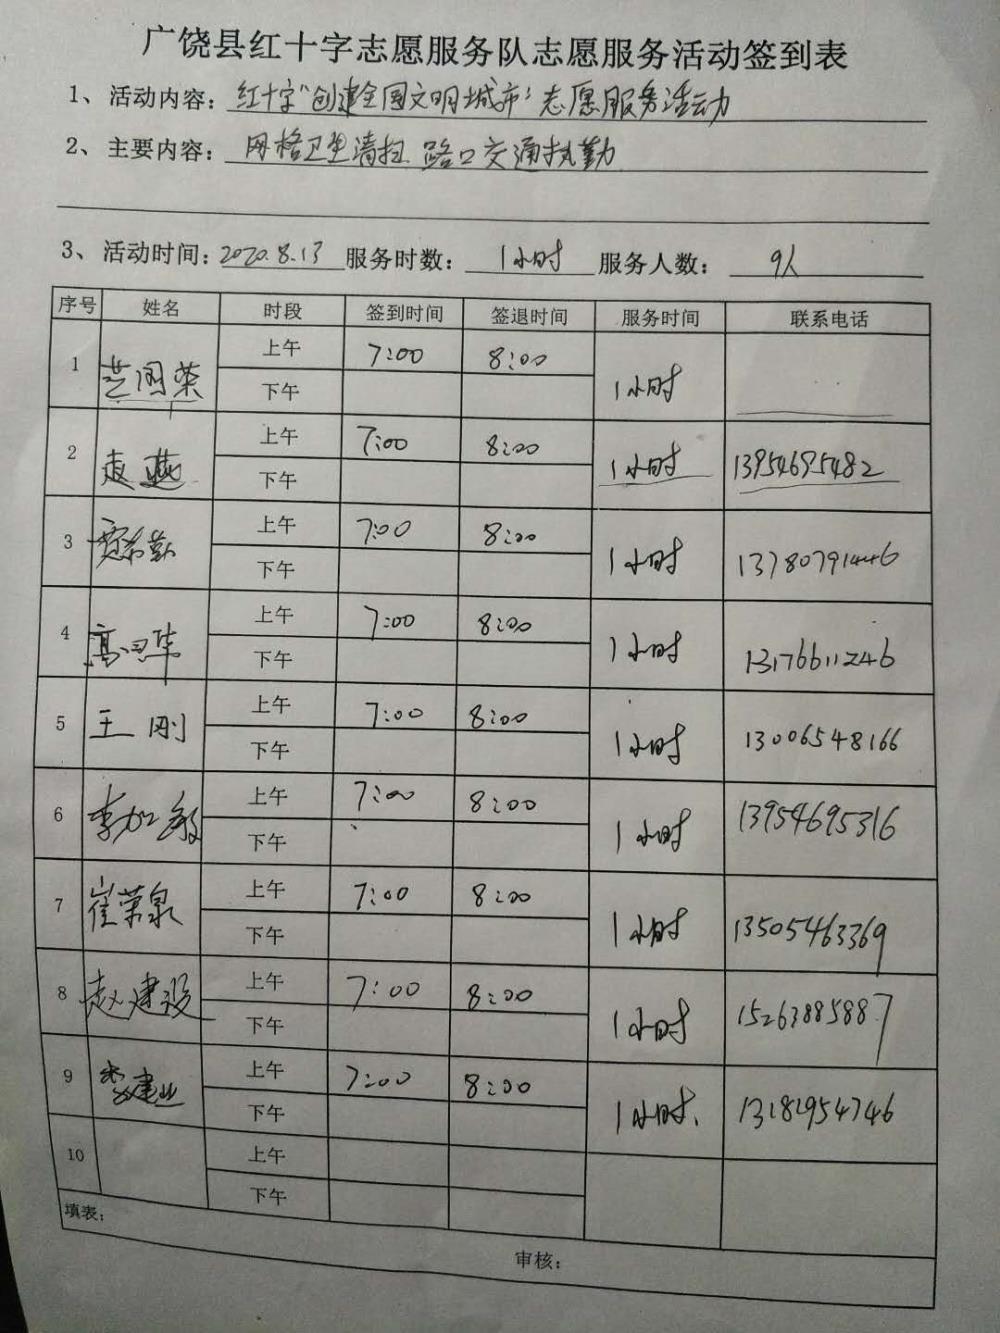 广饶县红十字志愿服务队志愿服务活动签到表
1、活动内容：红十字“创建全国文明城市”志愿服务活动
2、主要内容：网格卫生清扫 路口交通执勤
3、活动时间：2020.8.13 服务时数：1小时 服务人数：9人
序号 姓名 时段 签到时间 签退时间 服务时间 联系电话
1 上午 7:00 8:00 1小时
下午
2 燕 上午 7:00 8:00 1小时 13954695482
下午
3 上午 7:00 8:00 1小时 13780791446
下午
4 高 华 上午 7:00 8:00 1小时 13176611246
下午
5 王刚 上午 7:00 8:00 1小时 13006548166
下午
6 李加敏 上午 7:00 8:00 1小时 13954695316
下午
7 崔荣泉 上午 7:00 8:00 1小时 13505463369
下午
8 赵建设 上午 7:00 8:00 1小时 15263885887
下午
9 李建业 上午 7:00 8:00 1小时. 13181954746
下午
10 上午
下午
填表：
审核：